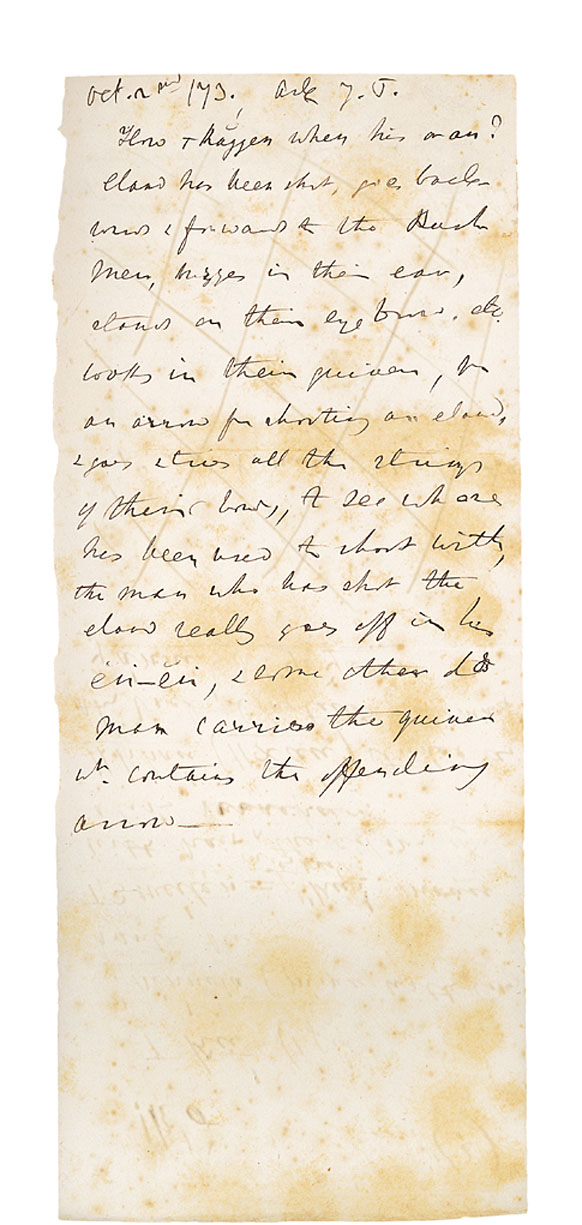 Oct. 2nd /73. Ask J. T.
How + Kaggen when his or an?
eland has been shot, goes back-
wards & forwards to the Bush
men, bizzes in their ear,
stands on their eye brow. etc.
looks in their quiver, for
an arrow for shooting an eland,
& goes & tries all the strings
of their bows, to see wh one
has been used to shoot with,
the man who has shot the
eland really goes off in his
& some other
man carries the quiver
wh. contains the offending
arrow—